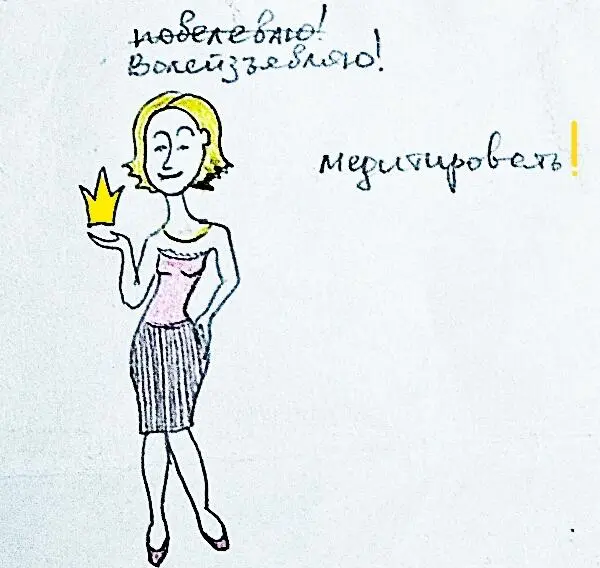 повелеваю!
Волеизъявляю!
медитировать!